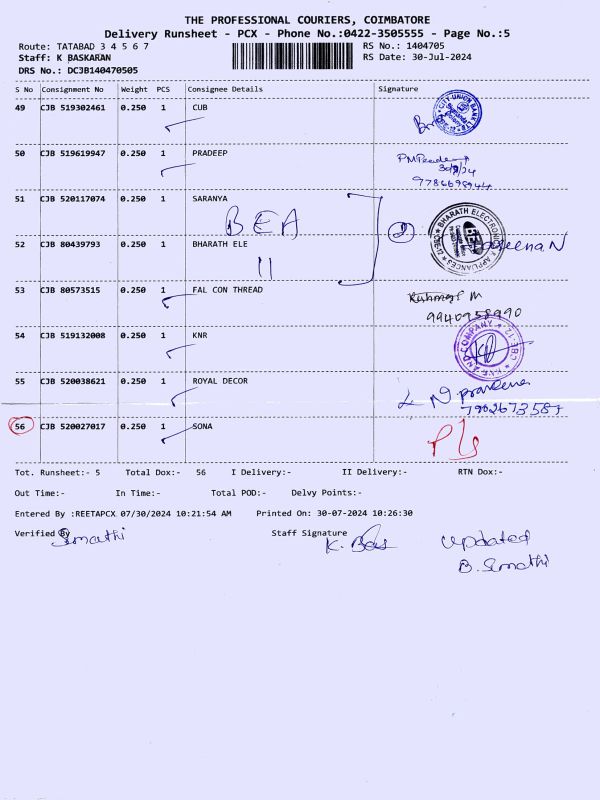 THE PROFESSIONAL COURIERS, COIMBATORE
Delivery Runsheet - PCX - Phone No.:0422-3505555 - Page No.:5
Route: TATABAD 3 4 5 6 7 RS No.: 1404705
Staff: K BASKARAN RS Date: 30-Jul-2024
DRS No.: DCJB140470505
S No Consignment No Weight PCS Consignee Details Signature
49 CJB 519302461 0.250 1 CUB
CITY UNION BANK LTD
50 CJB 519619947 0.250 1 PRADEEP
9786698944
51 CJB 520117074 0.250 1 SARANYA
BEA
2
BHARATH ELECTRONICS & APPLIANCES
52 CJB 80439793 0.250 1 BHARATH ELE
53 CJB 80573515 0.250 1 FAL CON THREAD
9940958990
54 CJB 519132008 0.250 1 KNR
AND COMPANY CBE-12
55 CJB 520038621 0.250 1 ROYAL DECOR
56 CJB 520027017 0.250 1 SONA
Tot. Runsheet:- 5 Total Dox:- 56 I Delivery:- II Delivery:- RTN Dox:-
Out Time:- In Time:- Total POD:- Delvy Points:-
Entered By :REETAPCX 07/30/2024 10:21:54 AM Printed On: 30-07-2024 10:26:30
Verified By Staff Signature
K. Bas updated
B. Sumathi